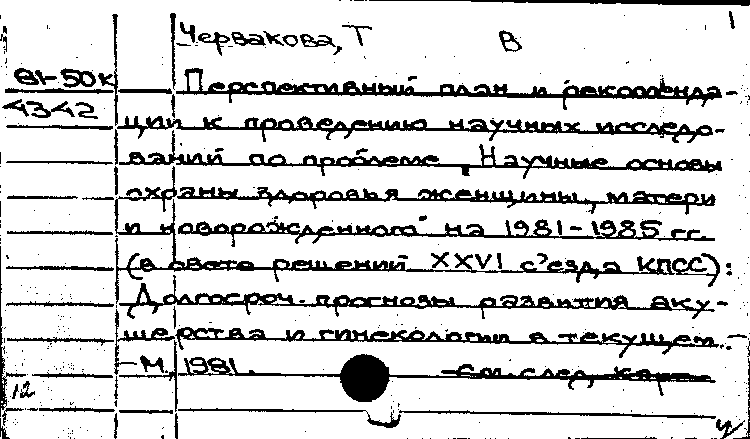 1
Червакова, Т В
81-50к
Перспективный план и рекоменда-
4342
ции к проведению научных исследо-
ваний по проблеме „Научные основы
охраны здоровья женщины, матери
и новорожденного" на 1981-1985 гг.
(в свете решений XXVI съезда КПСС):
Долгосроч. прогнозы развития аку-
шерства и гинекологии в текущем..-
-М, 1981.
см. след, карт.
12